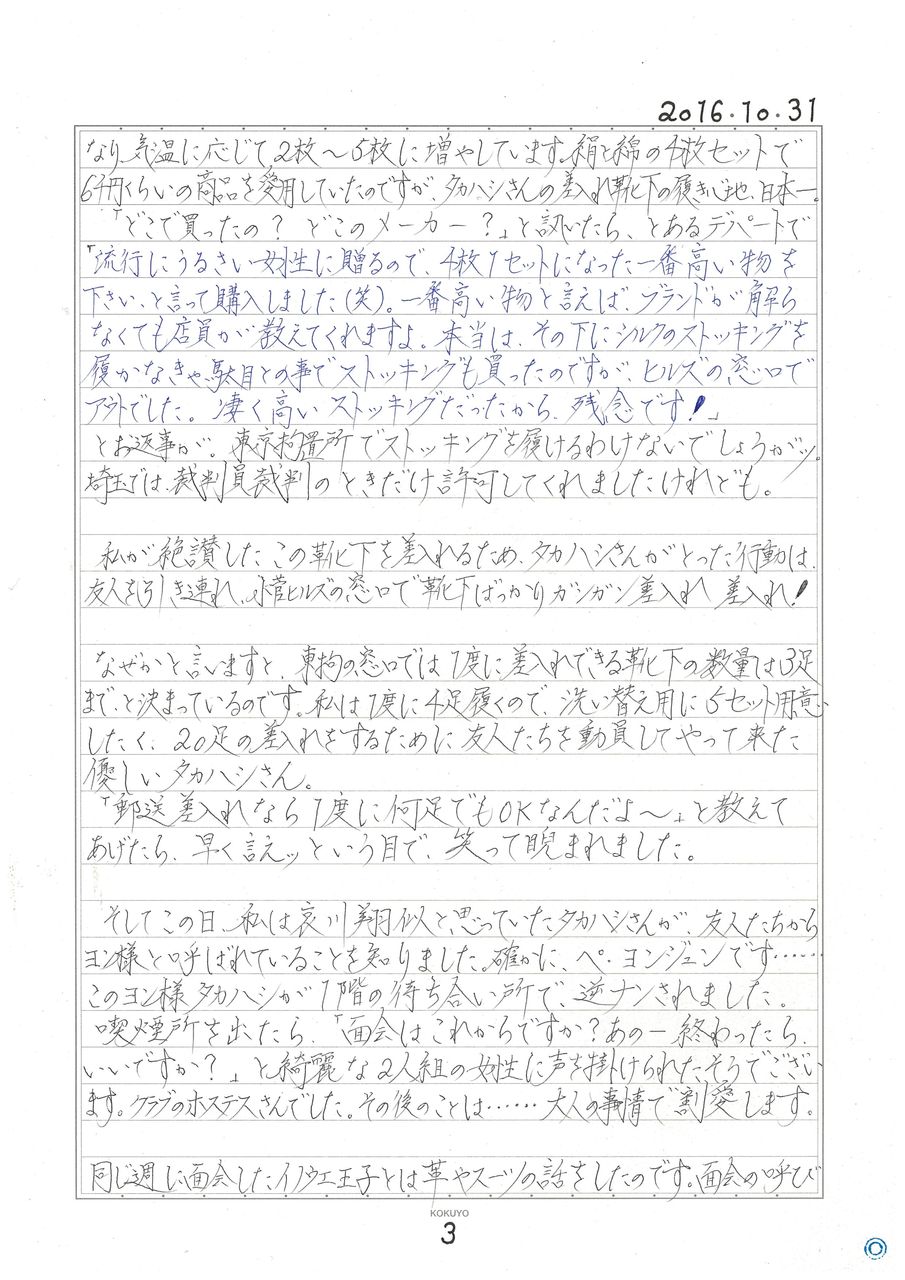 2016.10.31
なり、気温に応じて2枚〜5枚に増やしています。絹と綿の4枚セットで
6千円くらいの商品を愛用していたのですが、タカハシさんの差入れ靴下の履き心地、日本一。
「どこで買ったの？どこのメーカー？」と訊いたら、とあるデパートで
「流行にうるさい女性に贈るので、4枚1セットになった一番高い物を
下さい、と言って購入しました(笑)。一番高い物と言えば、ブランドが解ら
なくても店員が教えてくれますよ。本当は、その下にシルクのストッキングを
履かなきゃ駄目との事でストッキングも買ったのですが、ヒルズの窓口で
アウトでした。凄く高いストッキングだったから、残念です！」
とお返事が。東京拘置所でストッキングを履けるわけないでしょうがッ。
埼玉では、裁判員裁判のときだけ許可してくれましたけれども。
私が絶讃したこの靴下を差入れるため、タカハシさんがとった行動は、
友人を引き連れ、小菅ヒルズの窓口で靴下ばっかりガンガン差入れ 差入れ！
なぜかと言いますと、東拘の窓口では1度に差入れできる靴下の数量は3足
まで、と決まっているのです。私は1度に4足履くので、洗い替え用に5セット用意
したく、20足の差入れをするために友人たちを動員してやって来た
優しいタカハシさん。
「郵送差入れなら1度に何足でもOKなんだよ〜」と教えて
あげたら、早く言えッという目で、笑って睨まれました。
そしてこの日、私は哀川翔似と思っていたタカハシさんが、友人たちから
ヨン様と呼ばれていることを知りました。確かに、ペ・ヨンジュンです……
このヨン様タカハシが1階の待ち合い所で、逆ナンされました。
喫煙所を出たら、「面会はこれからですか？あのー終わったら
いいですか？」と綺麗な2人組の女性に声を掛けられたそうでござい
ます。クラブのホステスさんでした。その後のことは……大人の事情で割愛します。
同じ週に面会したイノウエ王子とは革やスーツの話をしたのです。面会の呼び
KOKUYO
3